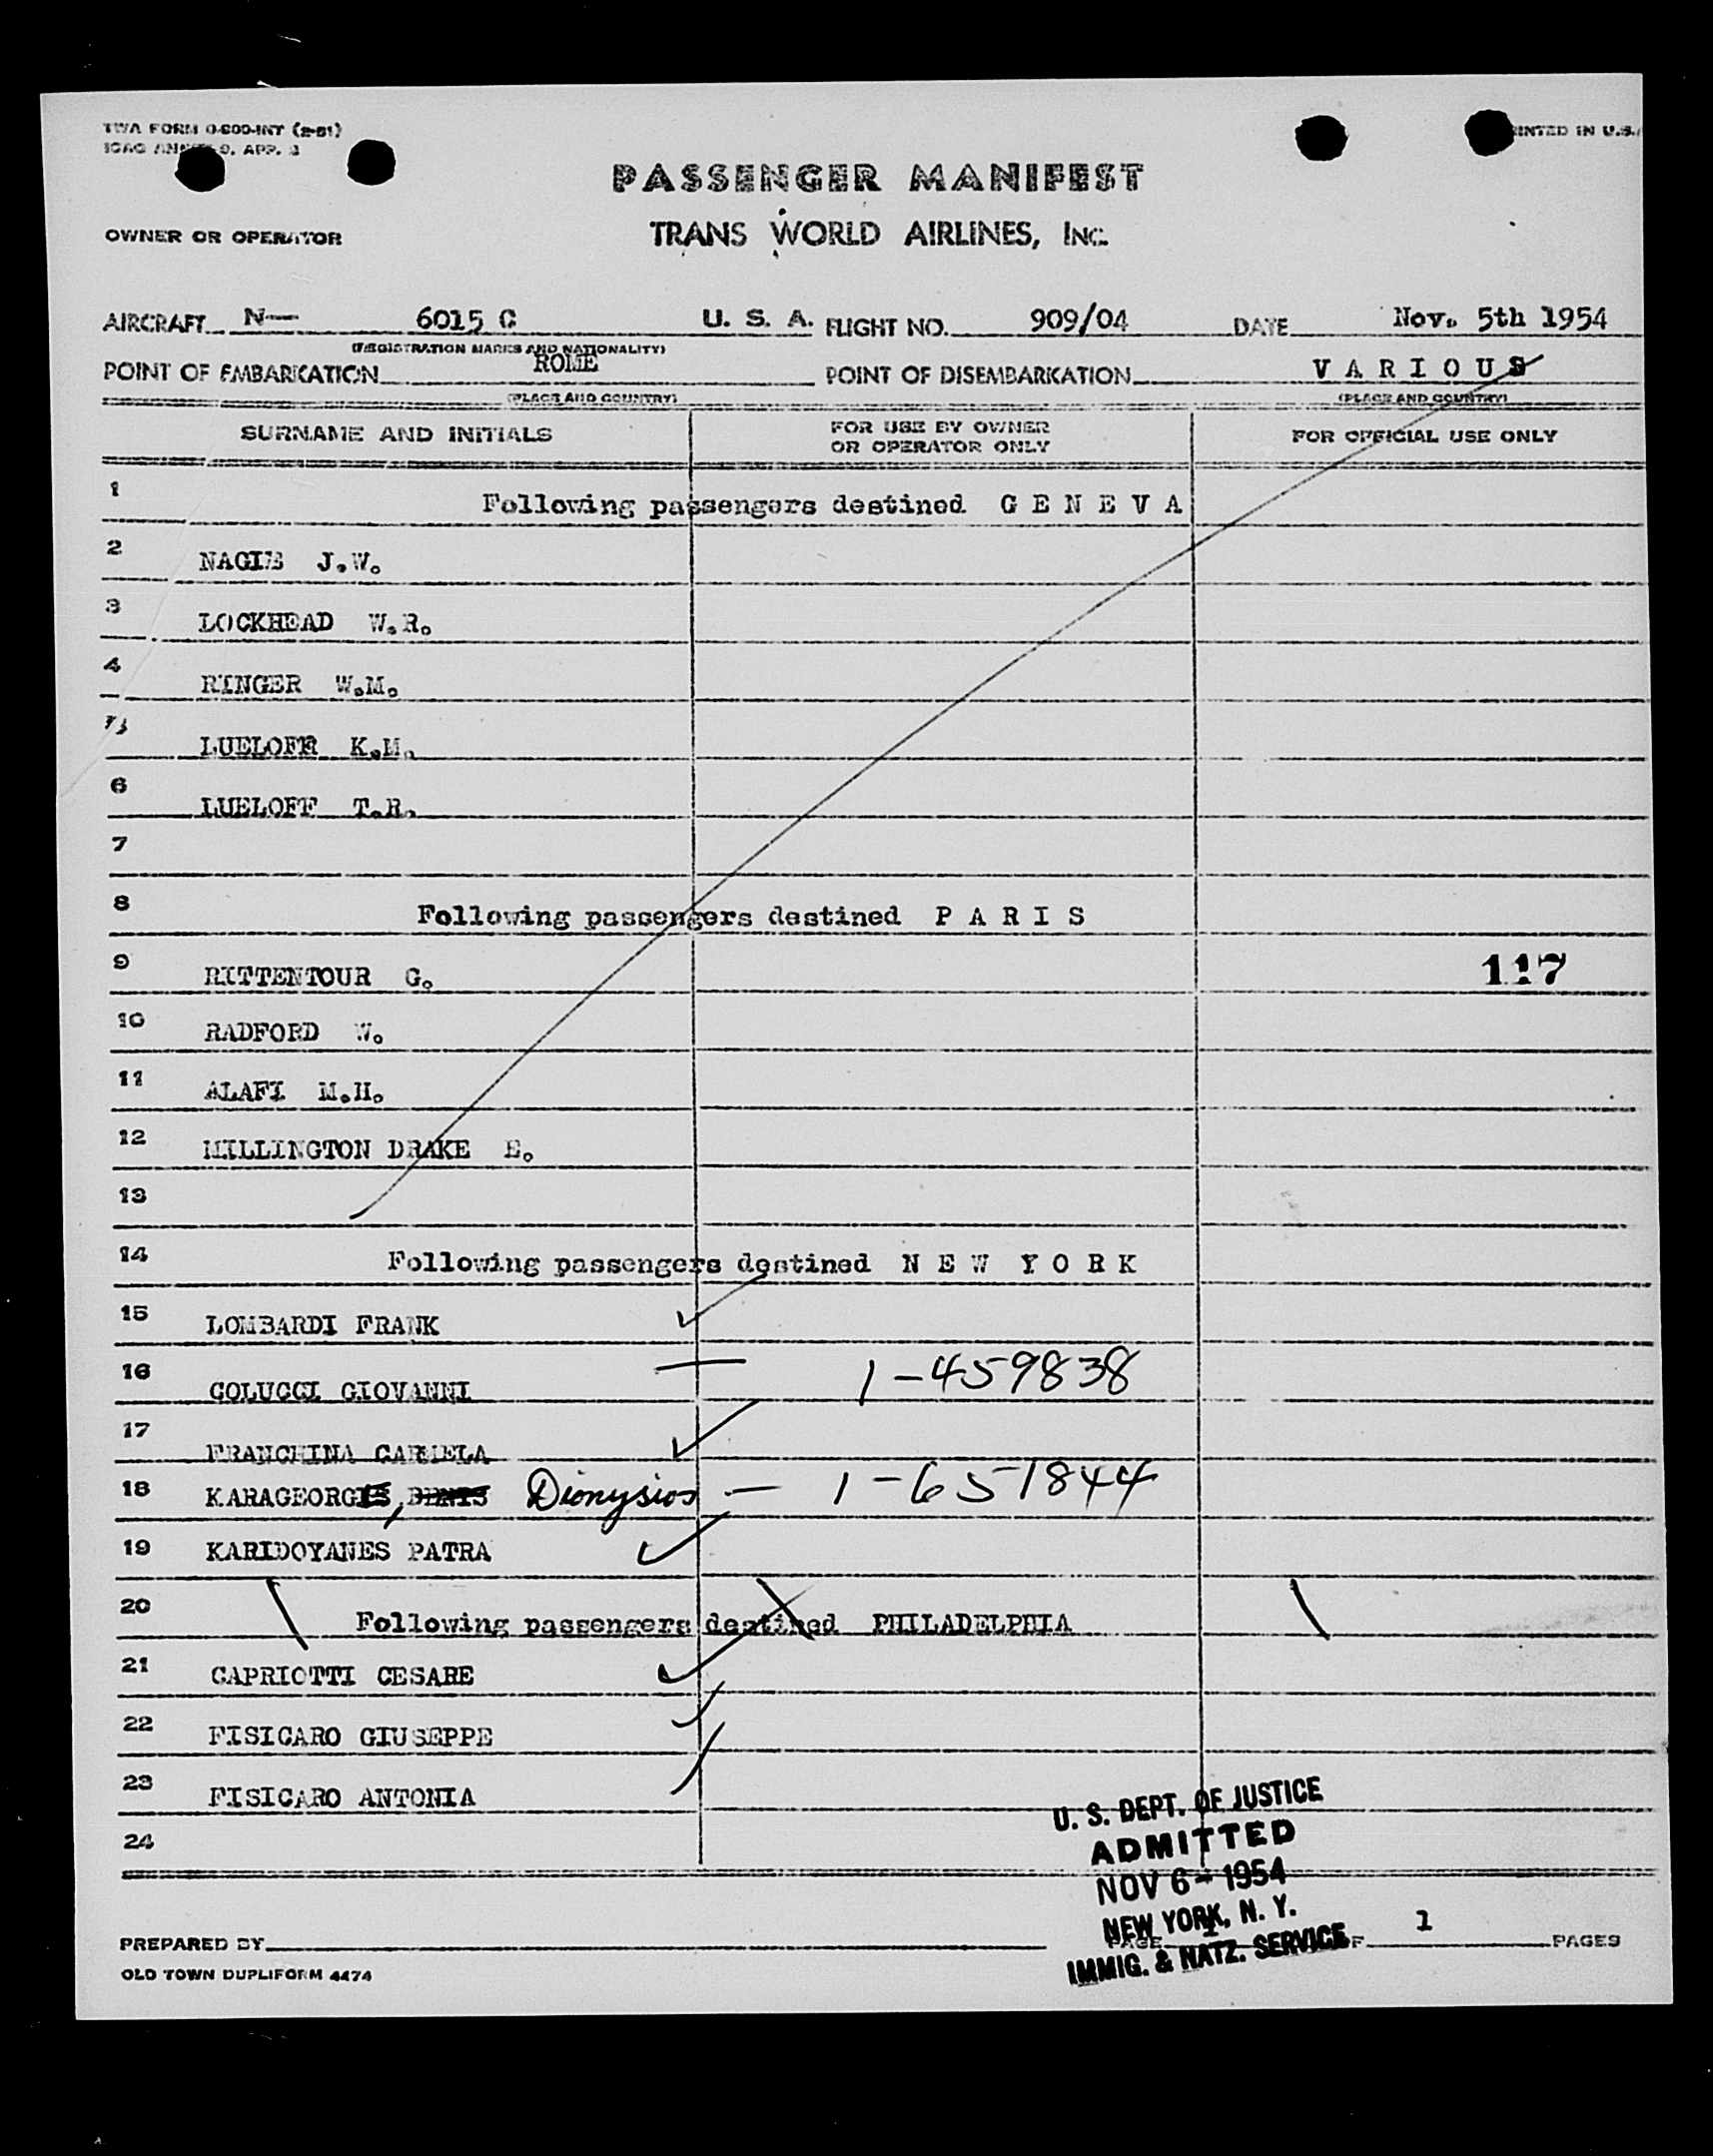 TWA FORM 0-800-INT (2-51)
ICAO ANNEX 9, APP. 3
PRINTED IN U.S.A
PASSENGER MANIFEST
OWNER OR OPERATOR TRANS WORLD AIRLINES, INC.
AIRCRAFT N— 6015 C U. S. A. FLIGHT NO. 909/04 DATE Nov. 5th 1954
(REGISTRATION MARKS AND NATIONALITY)
POINT OF EMBARKATION ROME POINT OF DISEMBARKATION V A R I O U S
(PLACE AND COUNTRY) (PLACE AND COUNTRY)
SURNAME AND INITIALS FOR USE BY OWNER OR OPERATOR ONLY FOR OFFICIAL USE ONLY
1 Following passengers destined G E N E V A
2 NAGIE J.W.
3 LOCKHEAD W.R.
4 RINGER W.M.
LUELOFF K.M.
6 LUELOFF T.R.
7
8 Following passengers destined P A R I S
9 RITTENTOUR G. 117
10 RADFORD W.
11 ALAFI M.H.
12 MILLINGTON DRAKE E.
13
14 Following passengers destined N E W Y O R K
15 LOMBARDI FRANK
16 COLUCCI GIOVANNI — 1-459838
17 FRANCHINA CARMELA
18 KARAGEORGIS, DENIS Dionysios — 1-651844
19 KARIDOYANES PATRA
20 Following passengers destined PHILADELPHIA
21 CAPRIOTTI CESARE
22 FISICARO GIUSEPPE
23 FISICARO ANTONIA
24
U. S. DEPT. OF JUSTICE
ADMITTED
NOV 6 - 1954
NEW YORK, N. Y.
IMMIG. & NATZ. SERVICE
PREPARED BY PAGE 1 OF 1 PAGES
OLD TOWN DUPLIFORM 4474